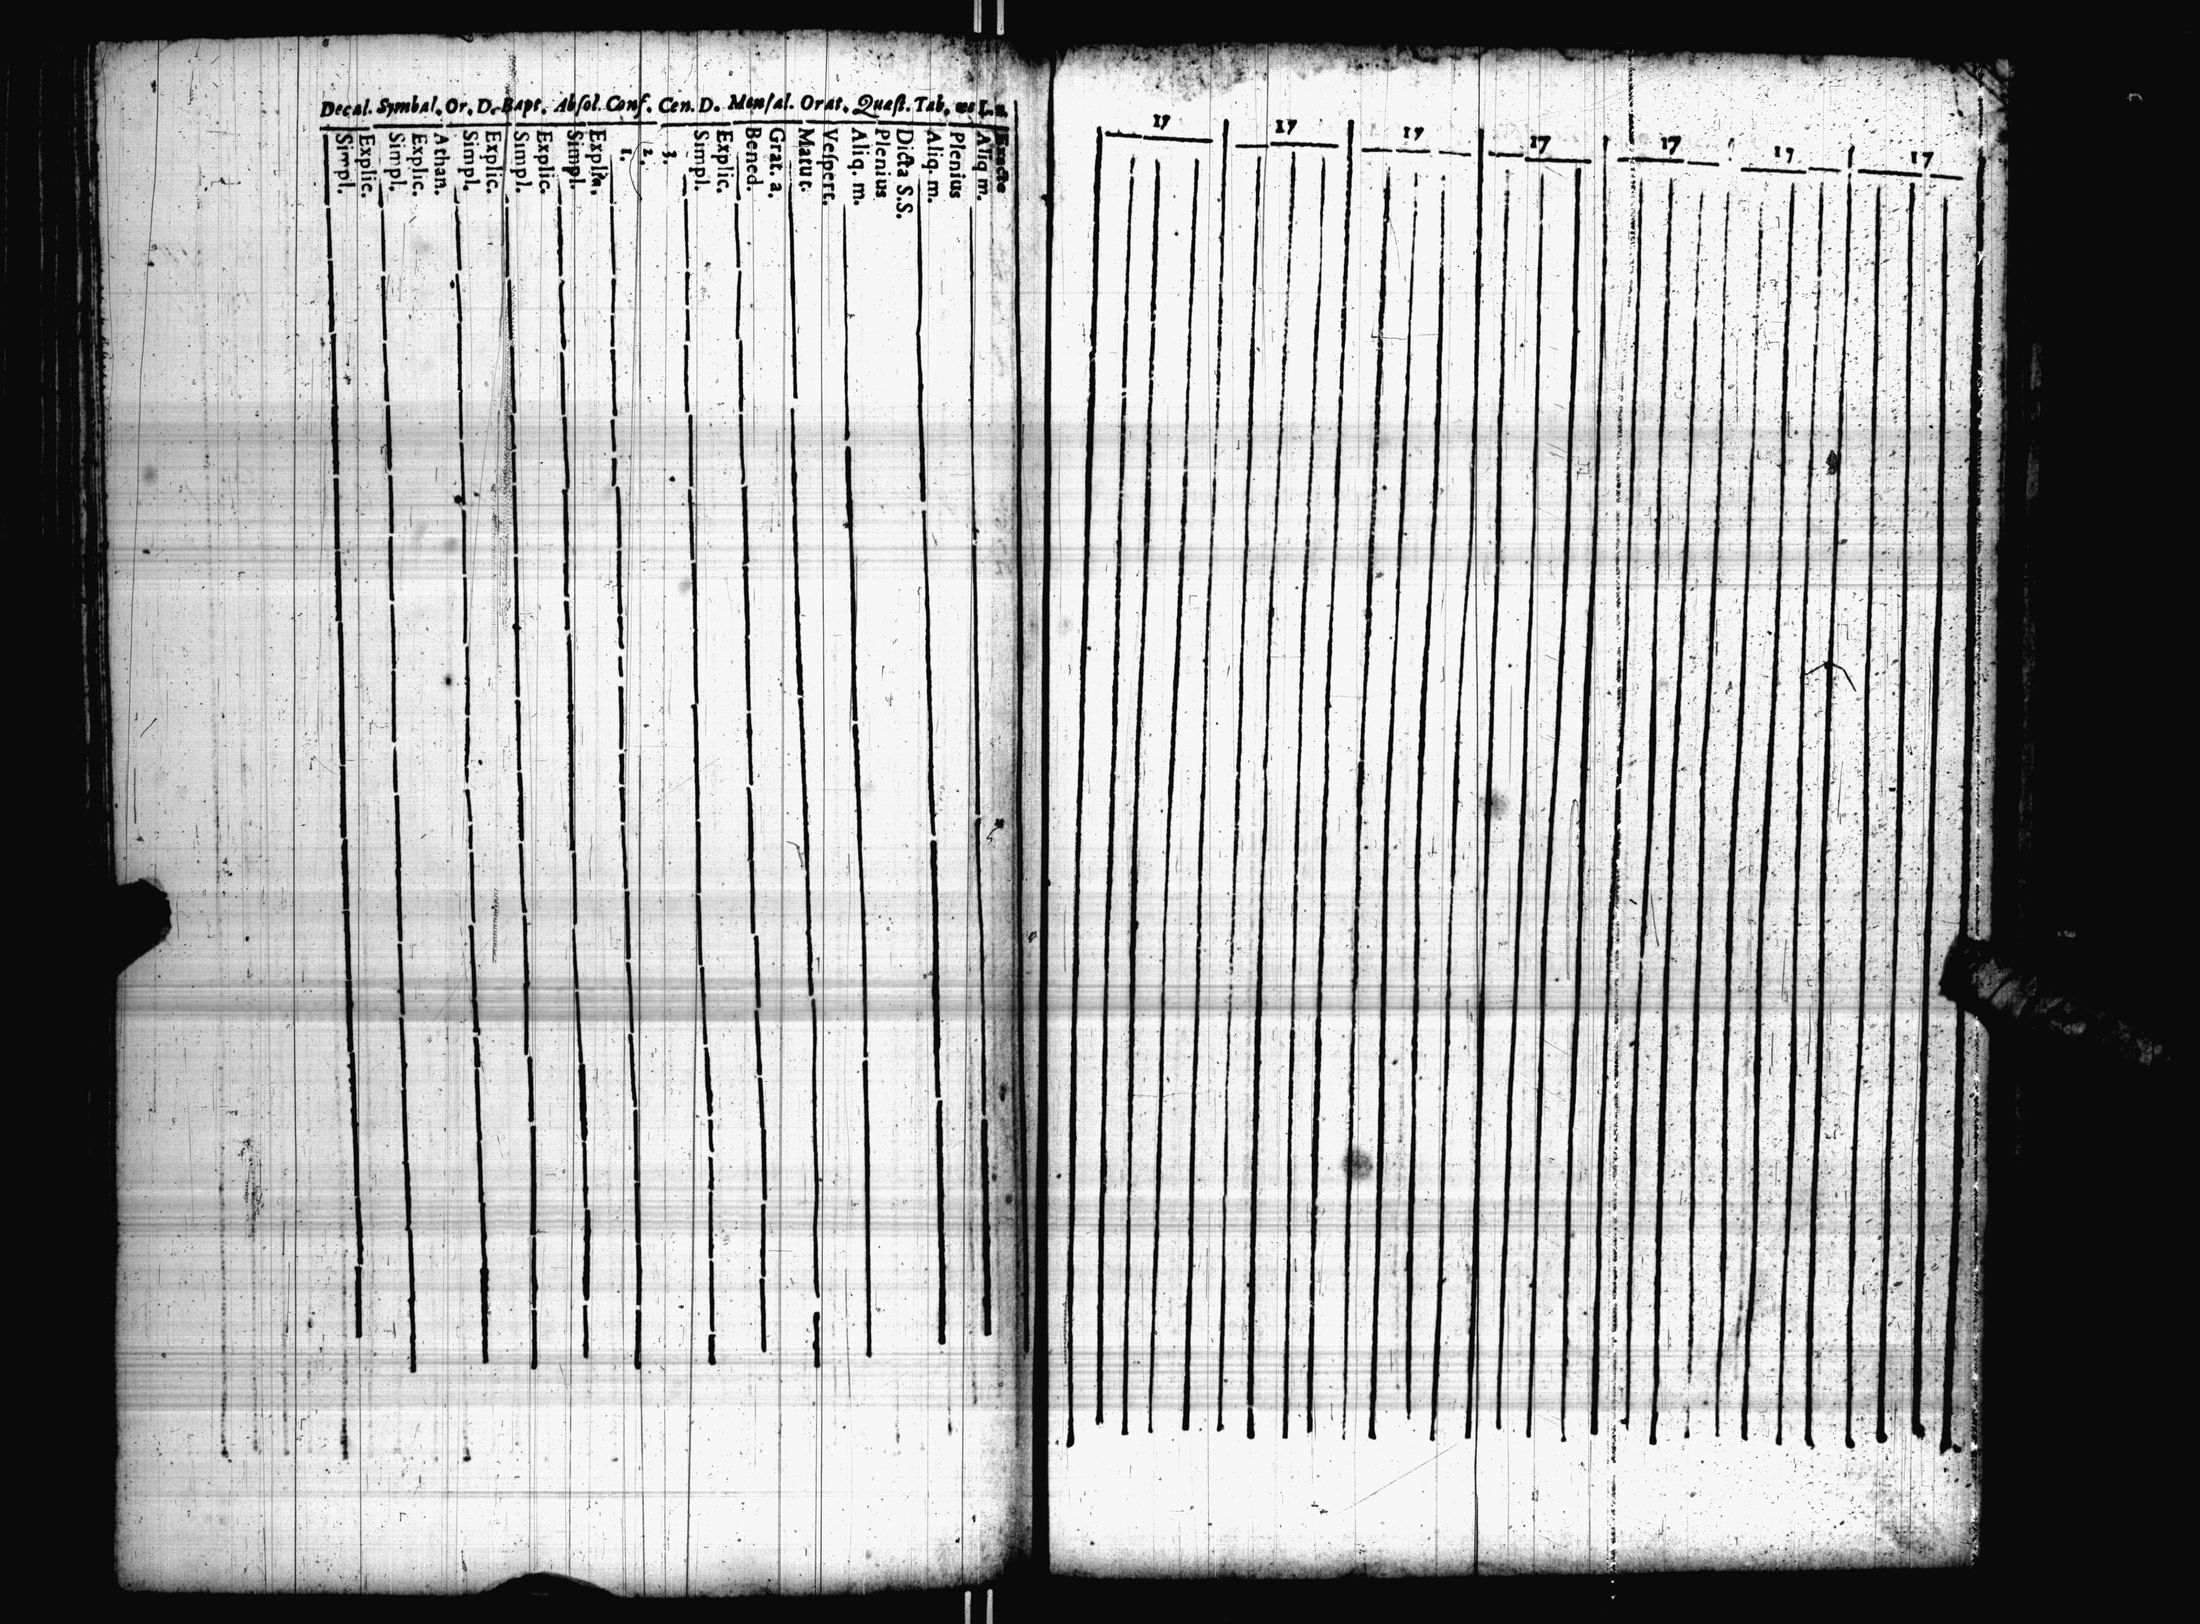 Decal. Symbal. Or. D. Bapt. Absol. Conf. Cen. D. Mensal. Orat. Quæst. Tab.
Simpl.
Explic.
Simpl.
Explic.
Athan.
Simpl.
Explic.
Simpl.
Explic.
Simpl.
Explic.
1.
2.
3.
Simpl.
Explic.
Bened.
Grat. a.
Matut.
Vespert.
Aliq. m.
Plenius
Dicta S.S.
Aliq. m.
Plenius
Aliq m.
Exacte
17 17 17 17 17 17 17